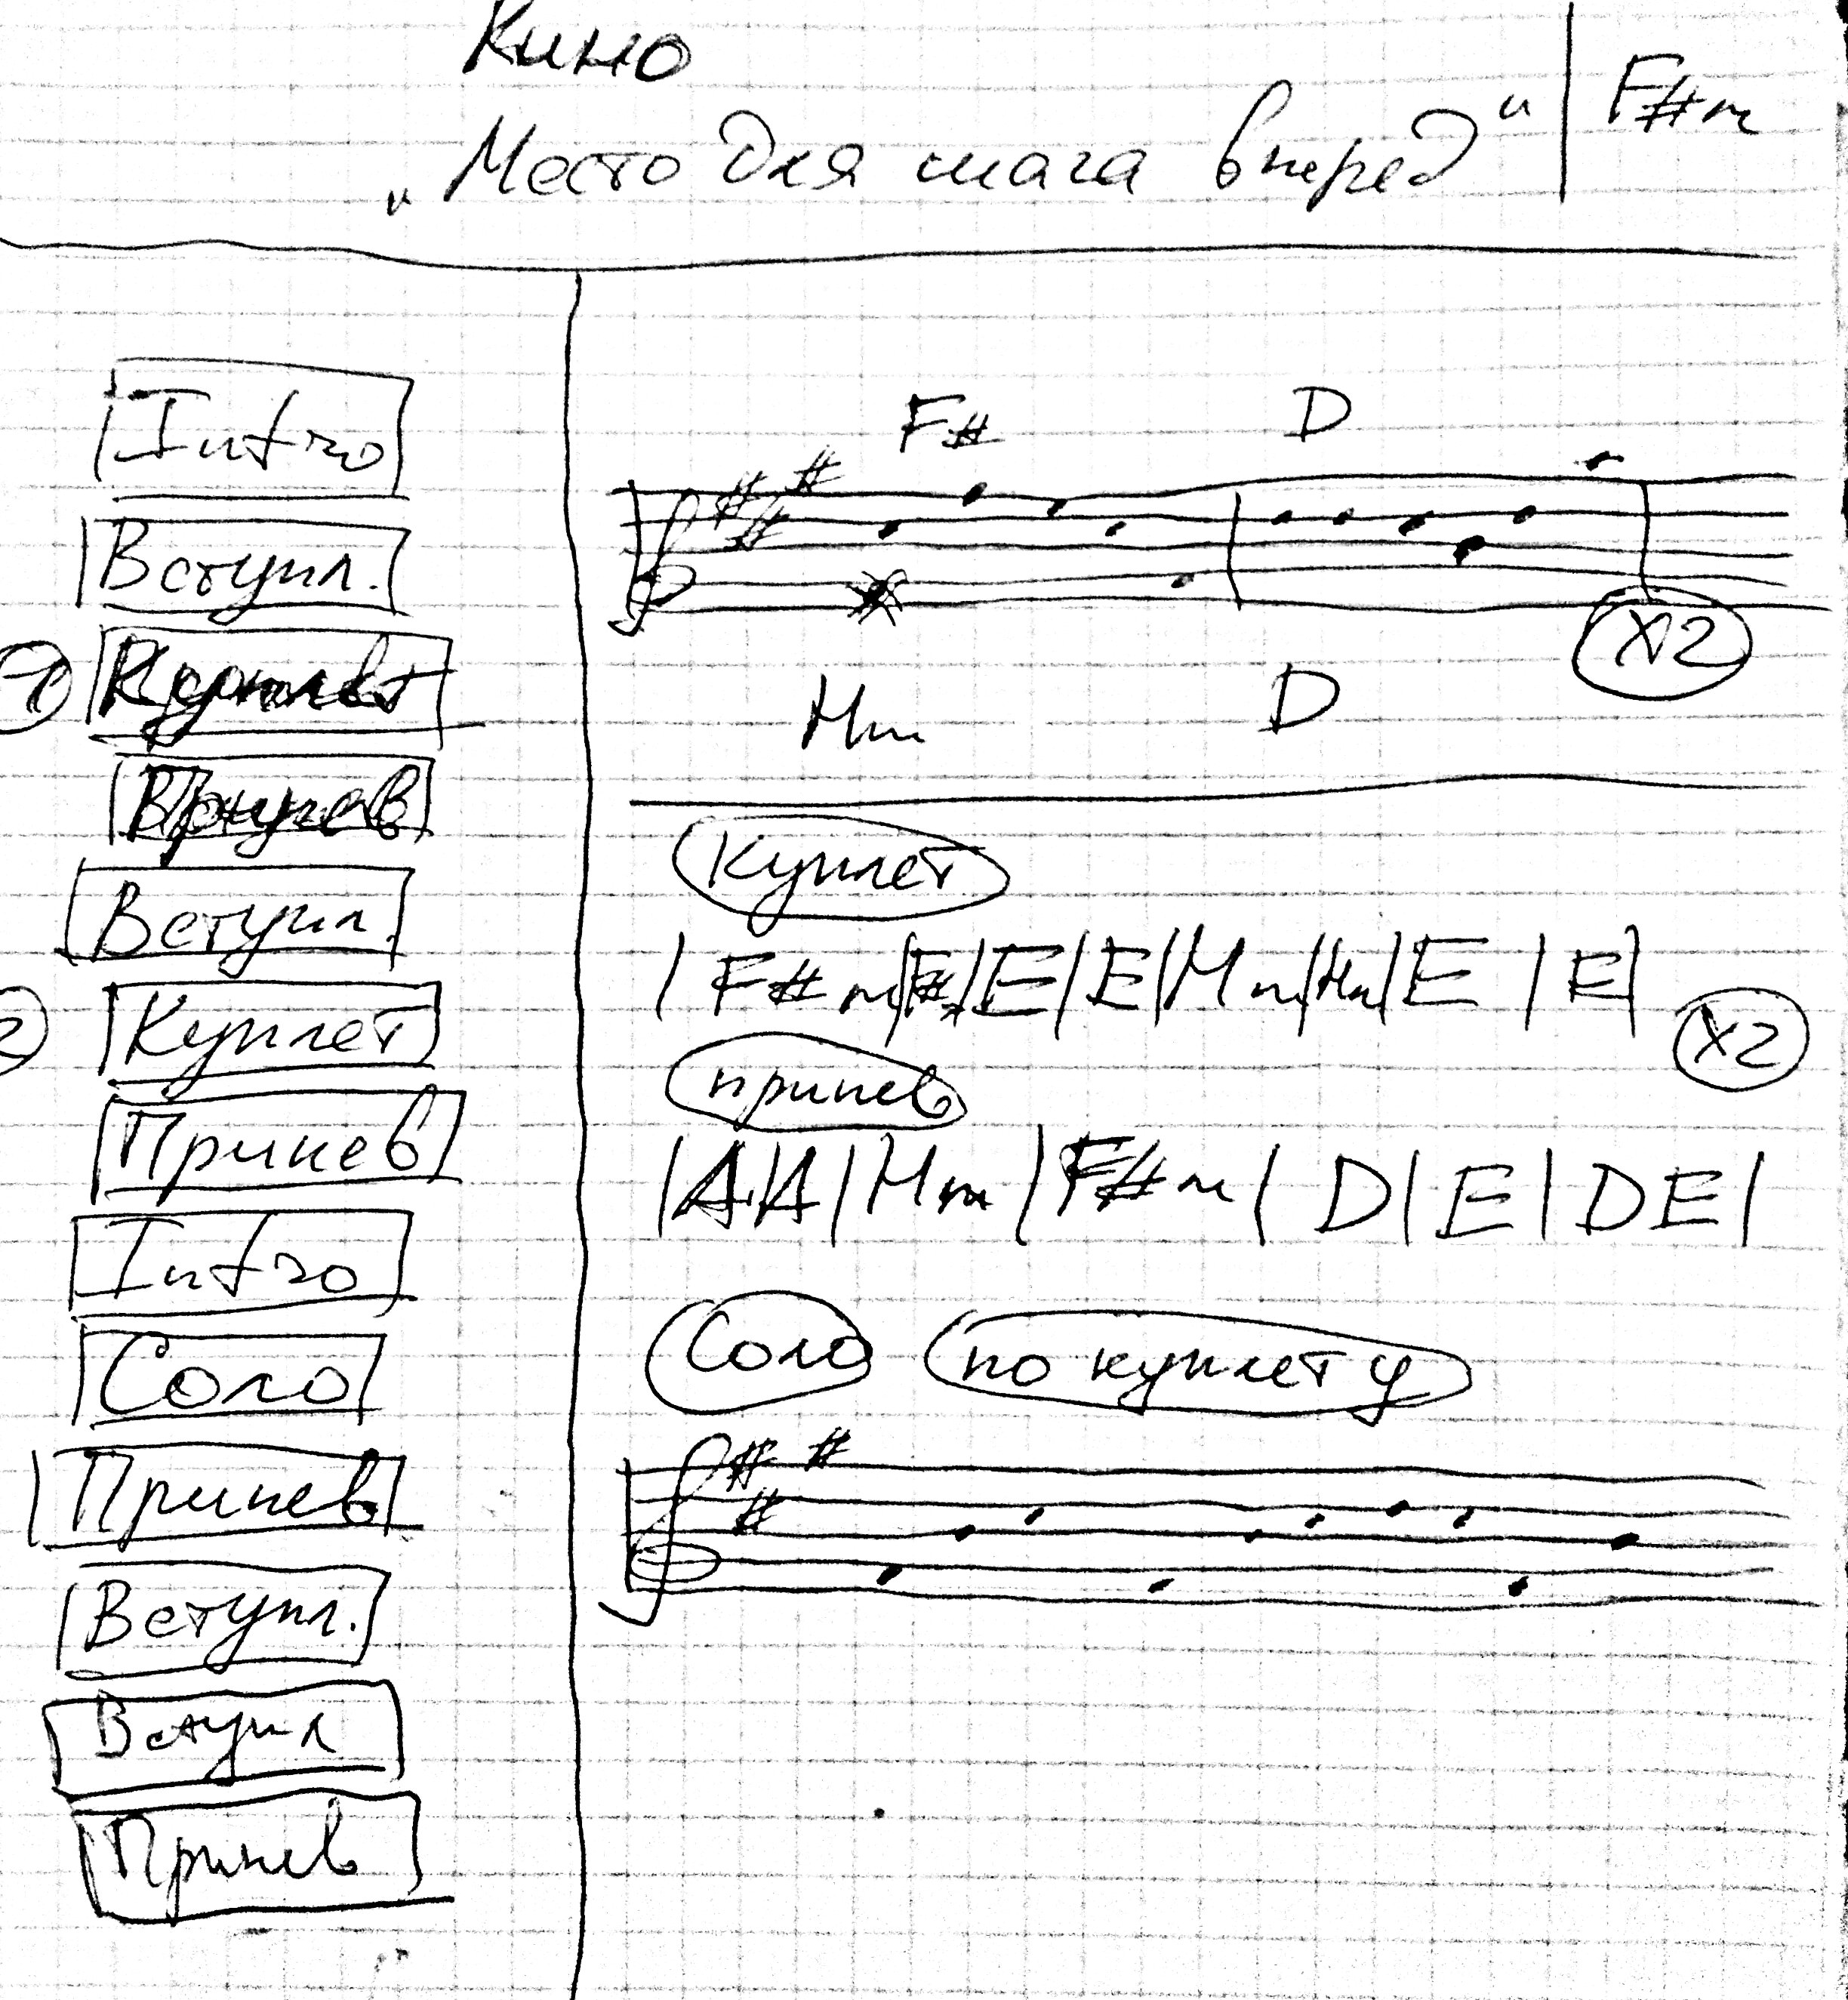 Кино
„Место для шага вперед" | F#m
Intro
Вступл.
1 Куплет
Припев
Вступл.
2 Куплет
Припев
Intro
Соло
Припев
Вступл.
Вступл
Припев
F# D
X2
Hm D
Куплет
| F#m | F#m | E | E | Hm | Hm | E | E |
X2
припев
| A | A | Hm | F#m | D | E | D E |
Соло по куплету